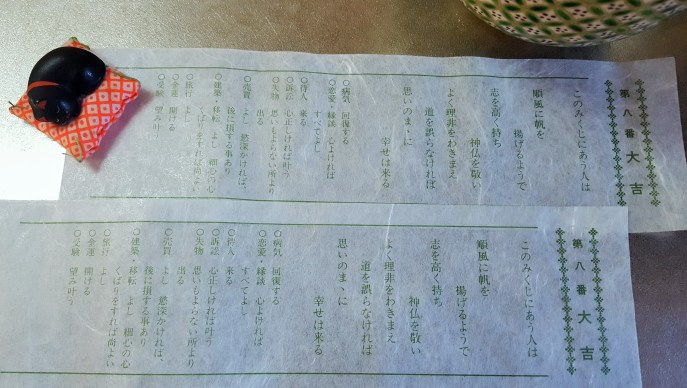 第八番 大吉
このみくじにあう人は
順風に帆を
揚げるようで
志を高く持ち
神仏を敬い
よく理非をわきまえ
道を誤らなければ
思いのまゝに
幸せは来る
○病気 回復する
○恋愛・縁談 心よければ
すべてよし
○待人 来る
○訴訟 心正しければ叶う
○失物 思いもよらない所より
出る
○売買 よし 慾深かければ、
後に損する事あり
○建築・移転 よし 細心の心
くばりをすれば尚よい
○旅行 よし
○金運 開ける
○受験 望み叶う
第八番 大吉
このみくじにあう人は
順風に帆を
揚げるようで
志を高く持ち
神仏を敬い
よく理非をわきまえ
道を誤らなければ
思いのまゝに
幸せは来る
○病気 回復する
○恋愛・縁談 心よければ
すべてよし
○待人 来る
○訴訟 心正しければ叶う
○失物 思いもよらない所より
出る
○売買 よし 慾深かければ、
後に損する事あり
○建築・移転 よし 細心の心
くばりをすれば尚よい
○旅行 よし
○金運 開ける
○受験 望み叶う